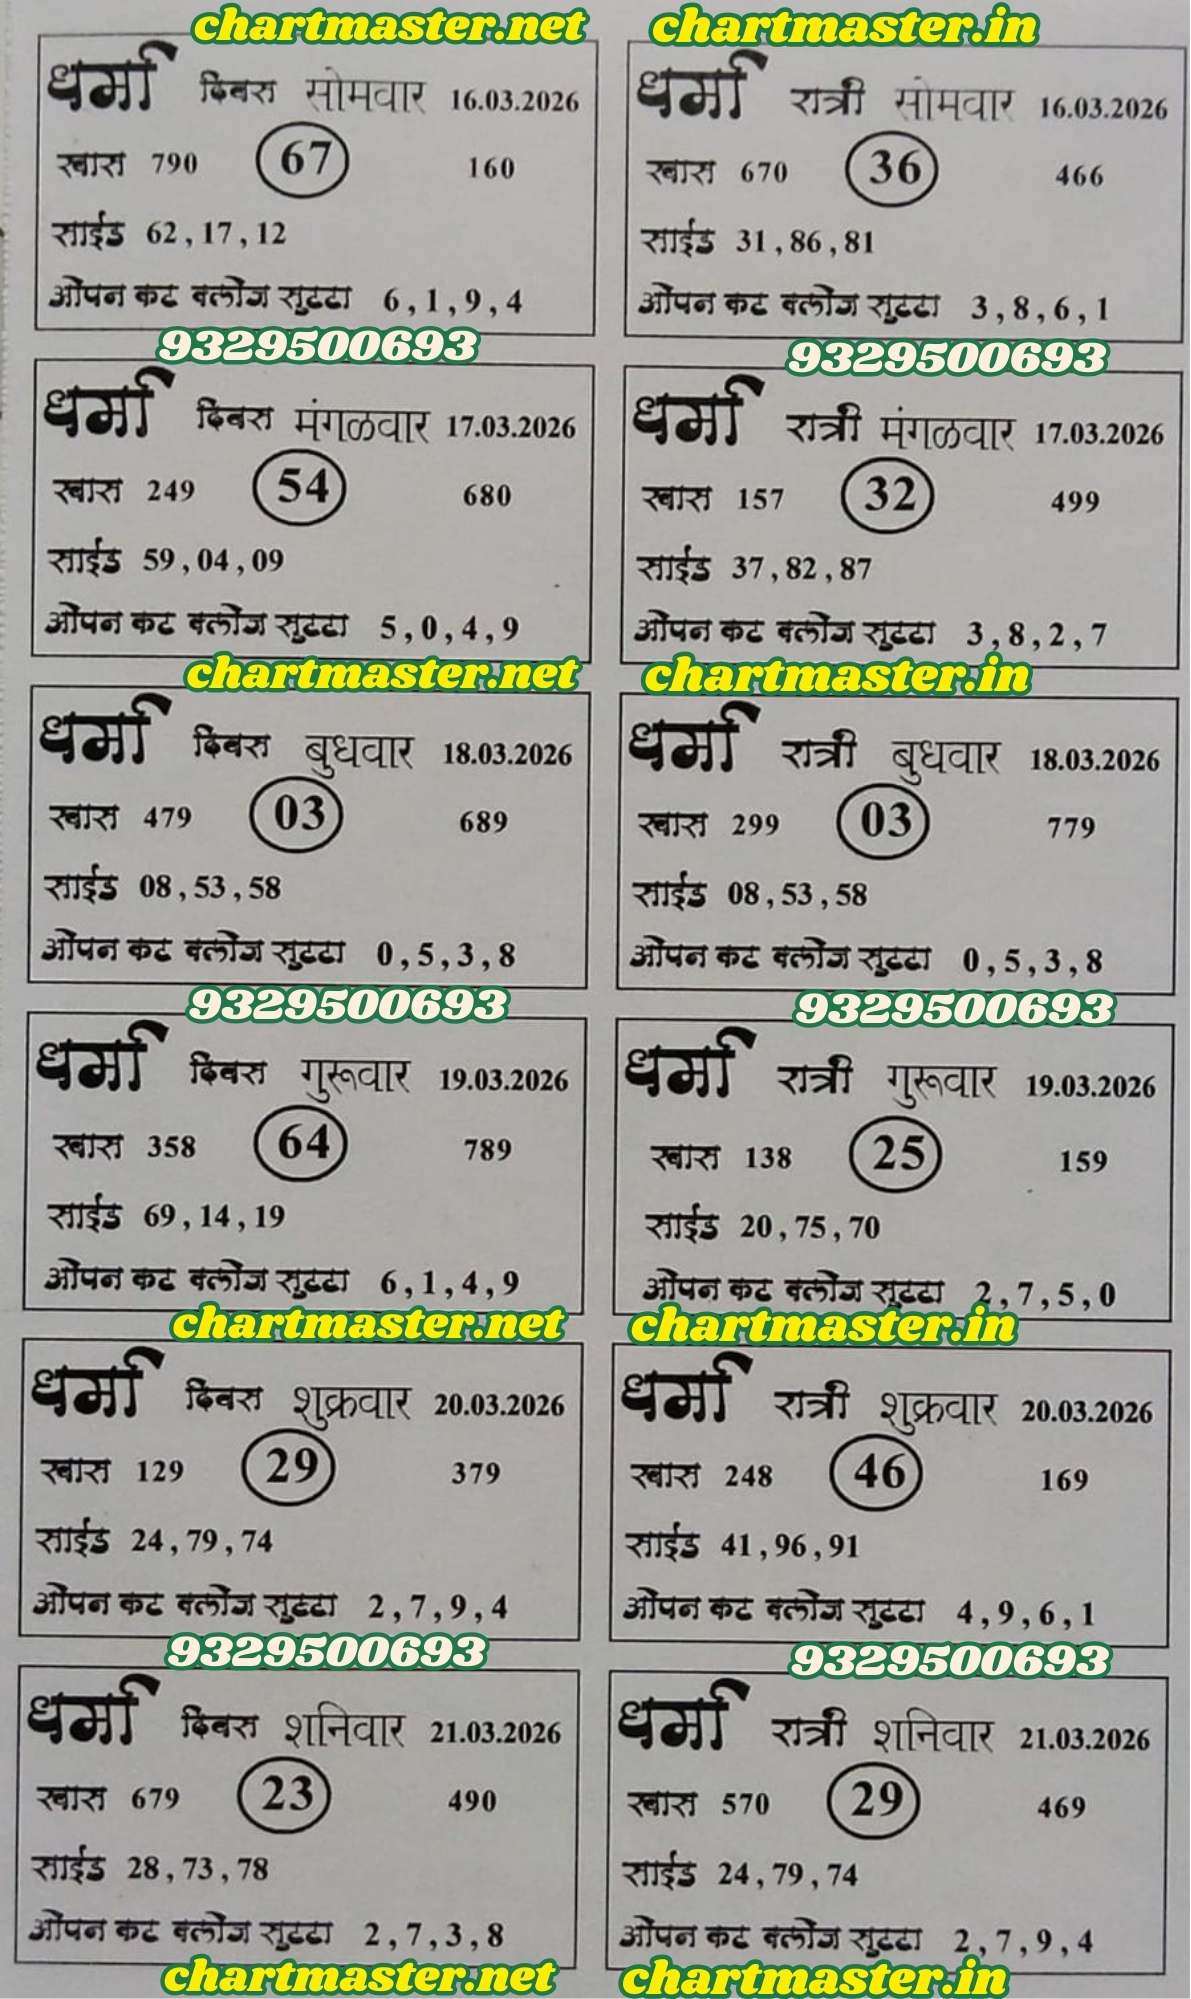 chartmaster.net
chartmaster.in
धर्मा दिवस सोमवार 16.03.2026
खास 790 67 160
साईड 62 , 17 , 12
ओपन कट क्लोज सुटटा 6 , 1 , 9 , 4
9329500693
धर्मा रात्री सोमवार 16.03.2026
खास 670 36 466
साईड 31 , 86 , 81
ओपन कट क्लोज सुटटा 3 , 8 , 6 , 1
9329500693
धर्मा दिवस मंगळवार 17.03.2026
खास 249 54 680
साईड 59 , 04 , 09
ओपन कट क्लोज सुटटा 5 , 0 , 4 , 9
chartmaster.net
धर्मा रात्री मंगळवार 17.03.2026
खास 157 32 499
साईड 37 , 82 , 87
ओपन कट क्लोज सुटटा 3 , 8 , 2 , 7
chartmaster.in
धर्मा दिवस बुधवार 18.03.2026
खास 479 03 689
साईड 08 , 53 , 58
ओपन कट क्लोज सुटटा 0 , 5 , 3 , 8
9329500693
धर्मा रात्री बुधवार 18.03.2026
खास 299 03 779
साईड 08 , 53 , 58
ओपन कट क्लोज सुटटा 0 , 5 , 3 , 8
9329500693
धर्मा दिवस गुरूवार 19.03.2026
खास 358 64 789
साईड 69 , 14 , 19
ओपन कट क्लोज सुटटा 6 , 1 , 4 , 9
chartmaster.net
धर्मा रात्री गुरूवार 19.03.2026
खास 138 25 159
साईड 20 , 75 , 70
ओपन कट क्लोज सुटटा 2 , 7 , 5 , 0
chartmaster.in
धर्मा दिवस शुक्रवार 20.03.2026
खास 129 29 379
साईड 24 , 79 , 74
ओपन कट क्लोज सुटटा 2 , 7 , 9 , 4
9329500693
धर्मा रात्री शुक्रवार 20.03.2026
खास 248 46 169
साईड 41 , 96 , 91
ओपन कट क्लोज सुटटा 4 , 9 , 6 , 1
9329500693
धर्मा दिवस शनिवार 21.03.2026
खास 679 23 490
साईड 28 , 73 , 78
ओपन कट क्लोज सुटटा 2 , 7 , 3 , 8
chartmaster.net
धर्मा रात्री शनिवार 21.03.2026
खास 570 29 469
साईड 24 , 79 , 74
ओपन कट क्लोज सुटटा 2 , 7 , 9 , 4
chartmaster.in